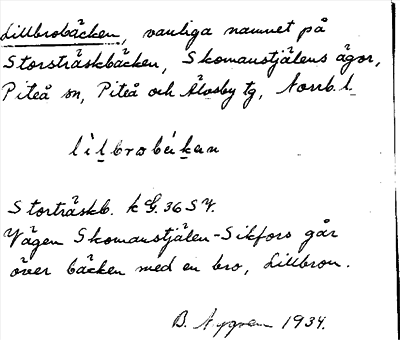 Lillbrobäcken, vanliga namnet på
Storsträskbäcken, Skomanstjälens ägor,
Piteå sn, Piteå och Älvsby tg, Norrb. l.
lìlbrobäkan
Storträskb. kG. 36 SV.
Vägen Skomanstjälen-Sikfors går
över bäcken med en bro, Lillbron.
B. Nygren 1934.